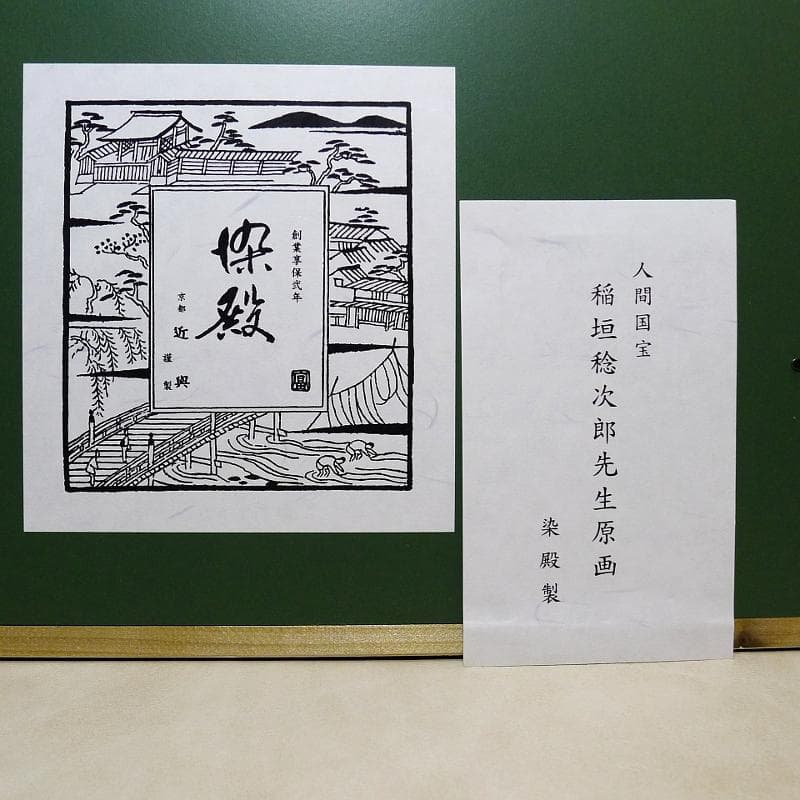 創業享保弐年
染殿
京都 近與 謹製
人間国宝
稲垣稔次郎先生原画
染殿製